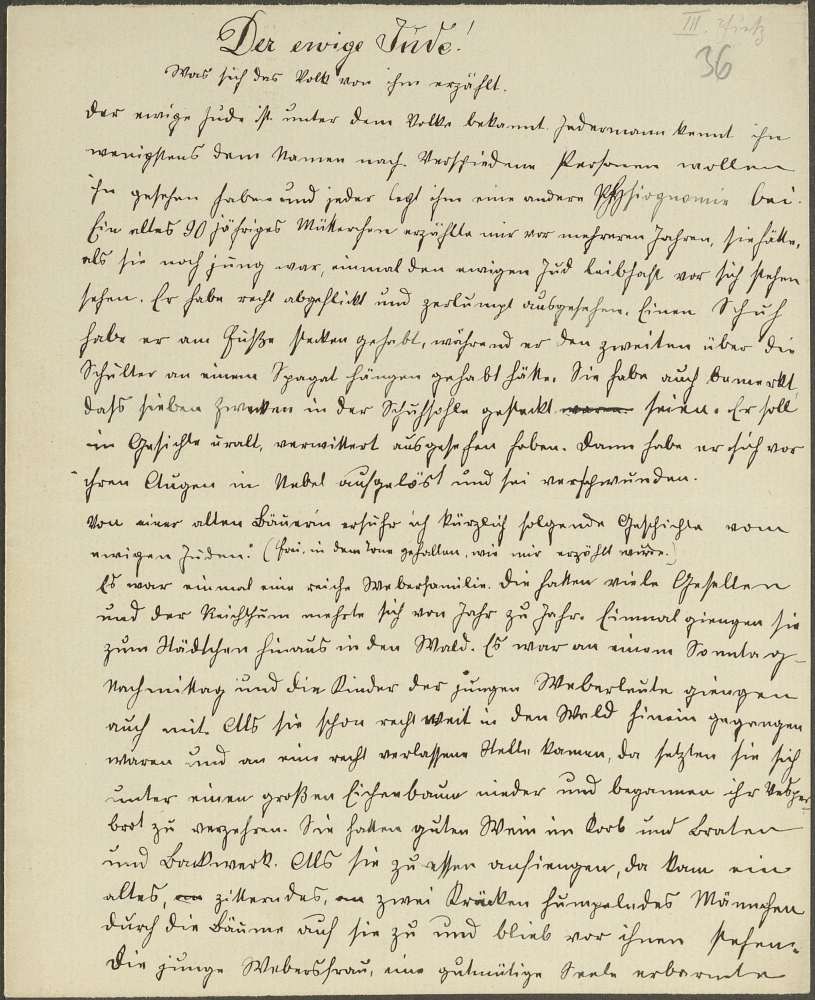 III.
36
Der ewige Jude!
Was sich das Volk von ihm erzählt.
Der ewige Jude ist unter dem Volke bekannt. Jedermann kennt ihn
wenigstens dem Namen nach. Verschiedene Personen wollen
ihn gesehen haben und jeder legt ihm eine andere Physiognomie bei.
Ein altes 90 jähriges Mütterchen erzählte mir vor mehreren Jahren, sie hätte,
als sie noch jung war, einmal den ewigen Jud leibhaft vor sich stehen
sehen. Er habe recht abgeflickt und zerlumpt ausgesehen. Einen Schuh
habe er am Fuße stecken gehabt, während er den zweiten über die
Schulter an einem Spagat hängen gehabt hätte. Sie habe auch bemerkt,
dass sieben Zwecken in der Schuhsohle gesteckt waren. seien. Er soll
im Gesichte uralt, verwittert ausgesehen haben. Dann habe er sich vor
ihren Augen in Nebel aufgelöst und sei verschwunden.
Von einer alten Bäuerin erfuhr ich kürzlich folgende Geschichte vom
ewigen Juden: (sei, in dem Tone gehalten, wie mir erzählt wurde.)
Es war einmal eine reiche Weberfamilie. Die hatten viele Gesellen
und der Reichthum mehrte sich von Jahr zu Jahr. Einmal giengen sie
zum Städtchen hinaus in den Wald. Es war an einem Sonntag-
Nachmittag und die Kinder der jungen Weberleute giengen
auch mit. Als sie schon recht weit in den Wald hinein gegangen
waren und an eine recht verlassene Stelle kamen, da setzten sie sich
unter einen großen Eichenbaum nieder und begannen ihr Vesper-
brot zu verzehren. Sie hatten guten Wein im Korb und Braten
und Backwerk. Als sie zu essen anfiengen, da kam ein
altes, zitterndes, an zwei Krücken humpelndes Männchen
durch die Bäume auf sie zu und blieb vor ihnen stehen.
Die junge Webersfrau, eine gutmütige Seele erbarmte